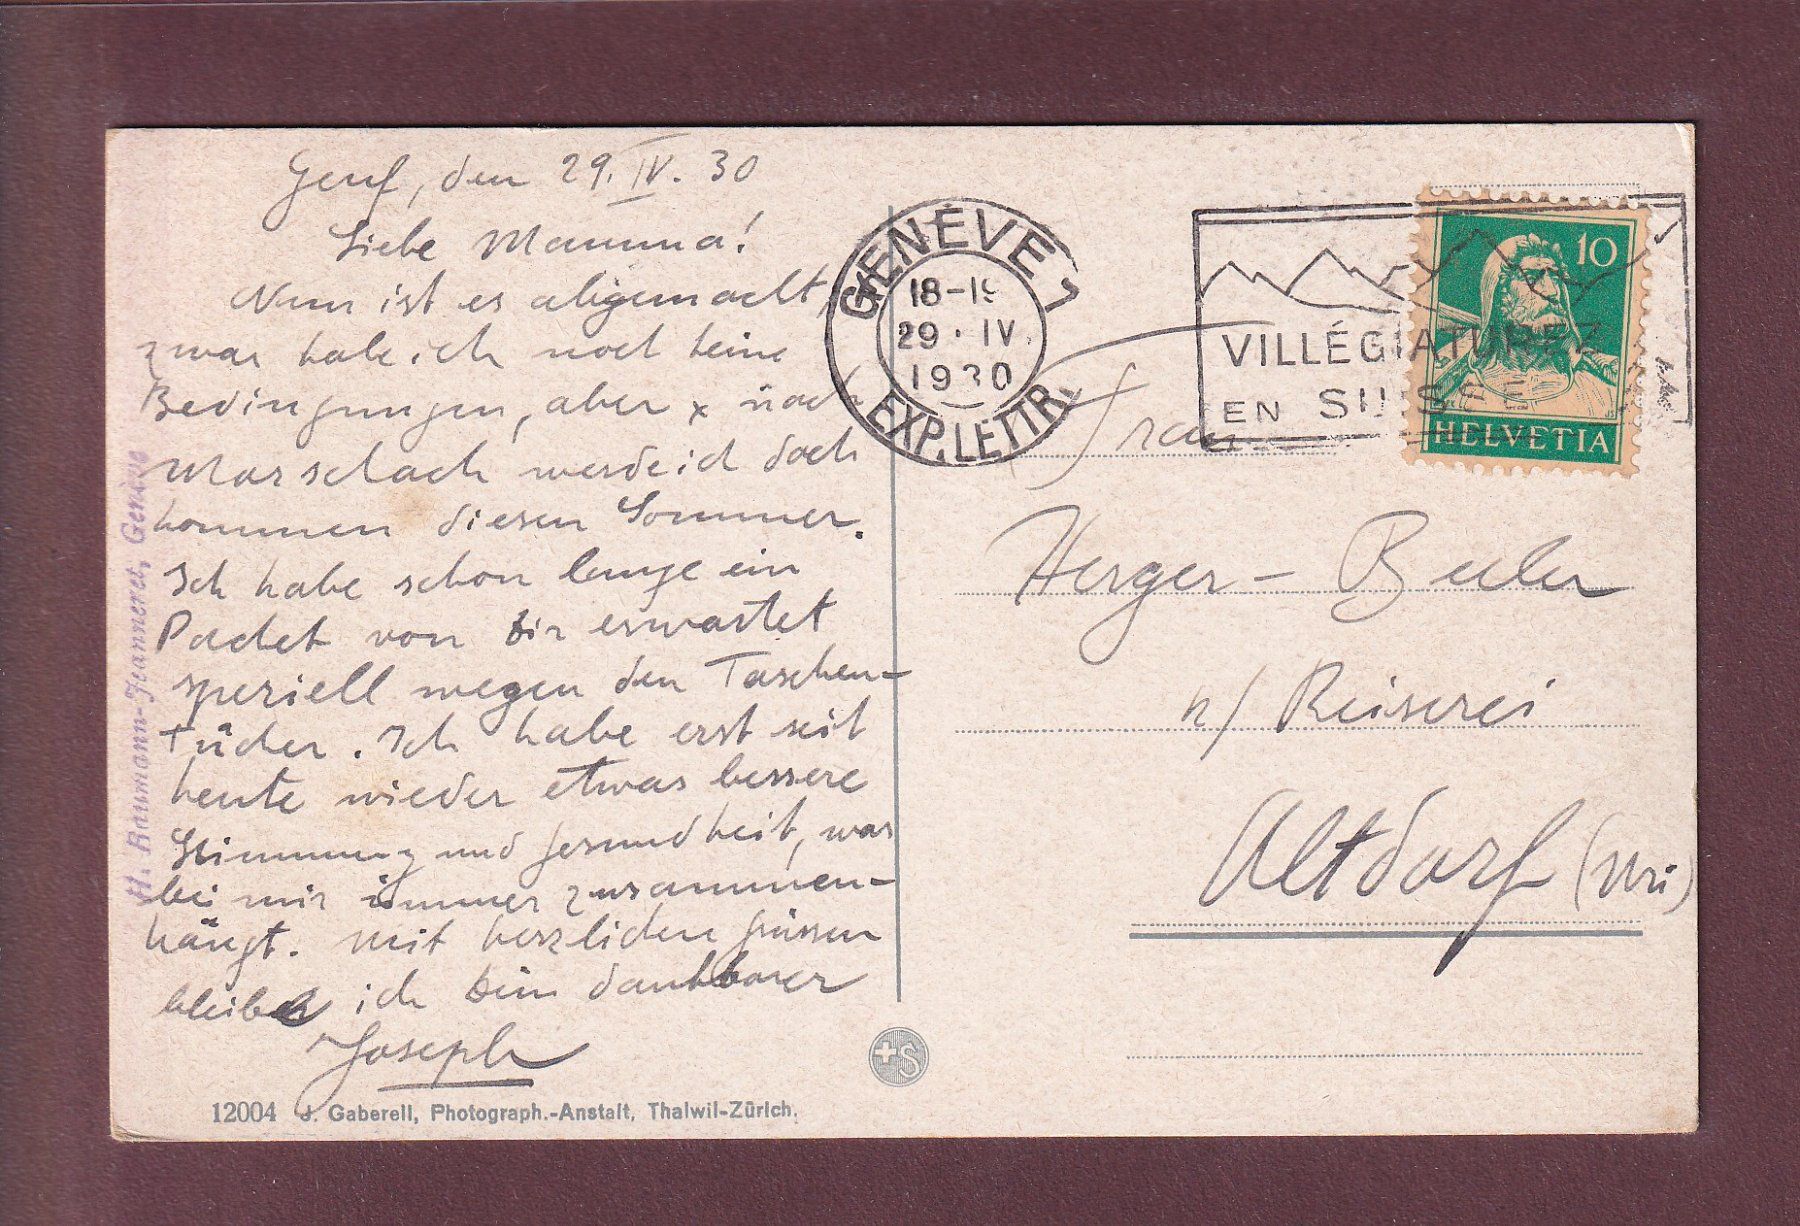 Genf, den 29. IV. 30
Liebe Mamma!
Nun ist es abgemacht,
zwar habe ich noch keine
Bedingungen, aber x nach
Marschlach werde ich doch
kommen diesen Sommer.
Ich habe schon lange ein
Packet von Dir erwartet
speziell wegen den Taschen-
tücher. Ich habe erst seit
heute wieder etwas bessere
Stimmung und Gesundheit, was
bei mir immer zusammen-
hängt. Mit herzlichen Grüssen
bleibe ich Dein dankbarer
Joseph
12004 J. Gaberell, Photograph.-Anstalt, Thalwil-Zürich.
H. Baumann-Jeanneret, Genève
GENÈVE 1
18-19
29. IV.
1930
EXP. LETTR.
VILLÉGIATUREZ
EN SUISSE
10
HELVETIA
Frau
Herger - Beeler
n/ Reiserei
Altdorf (Uri)
+S